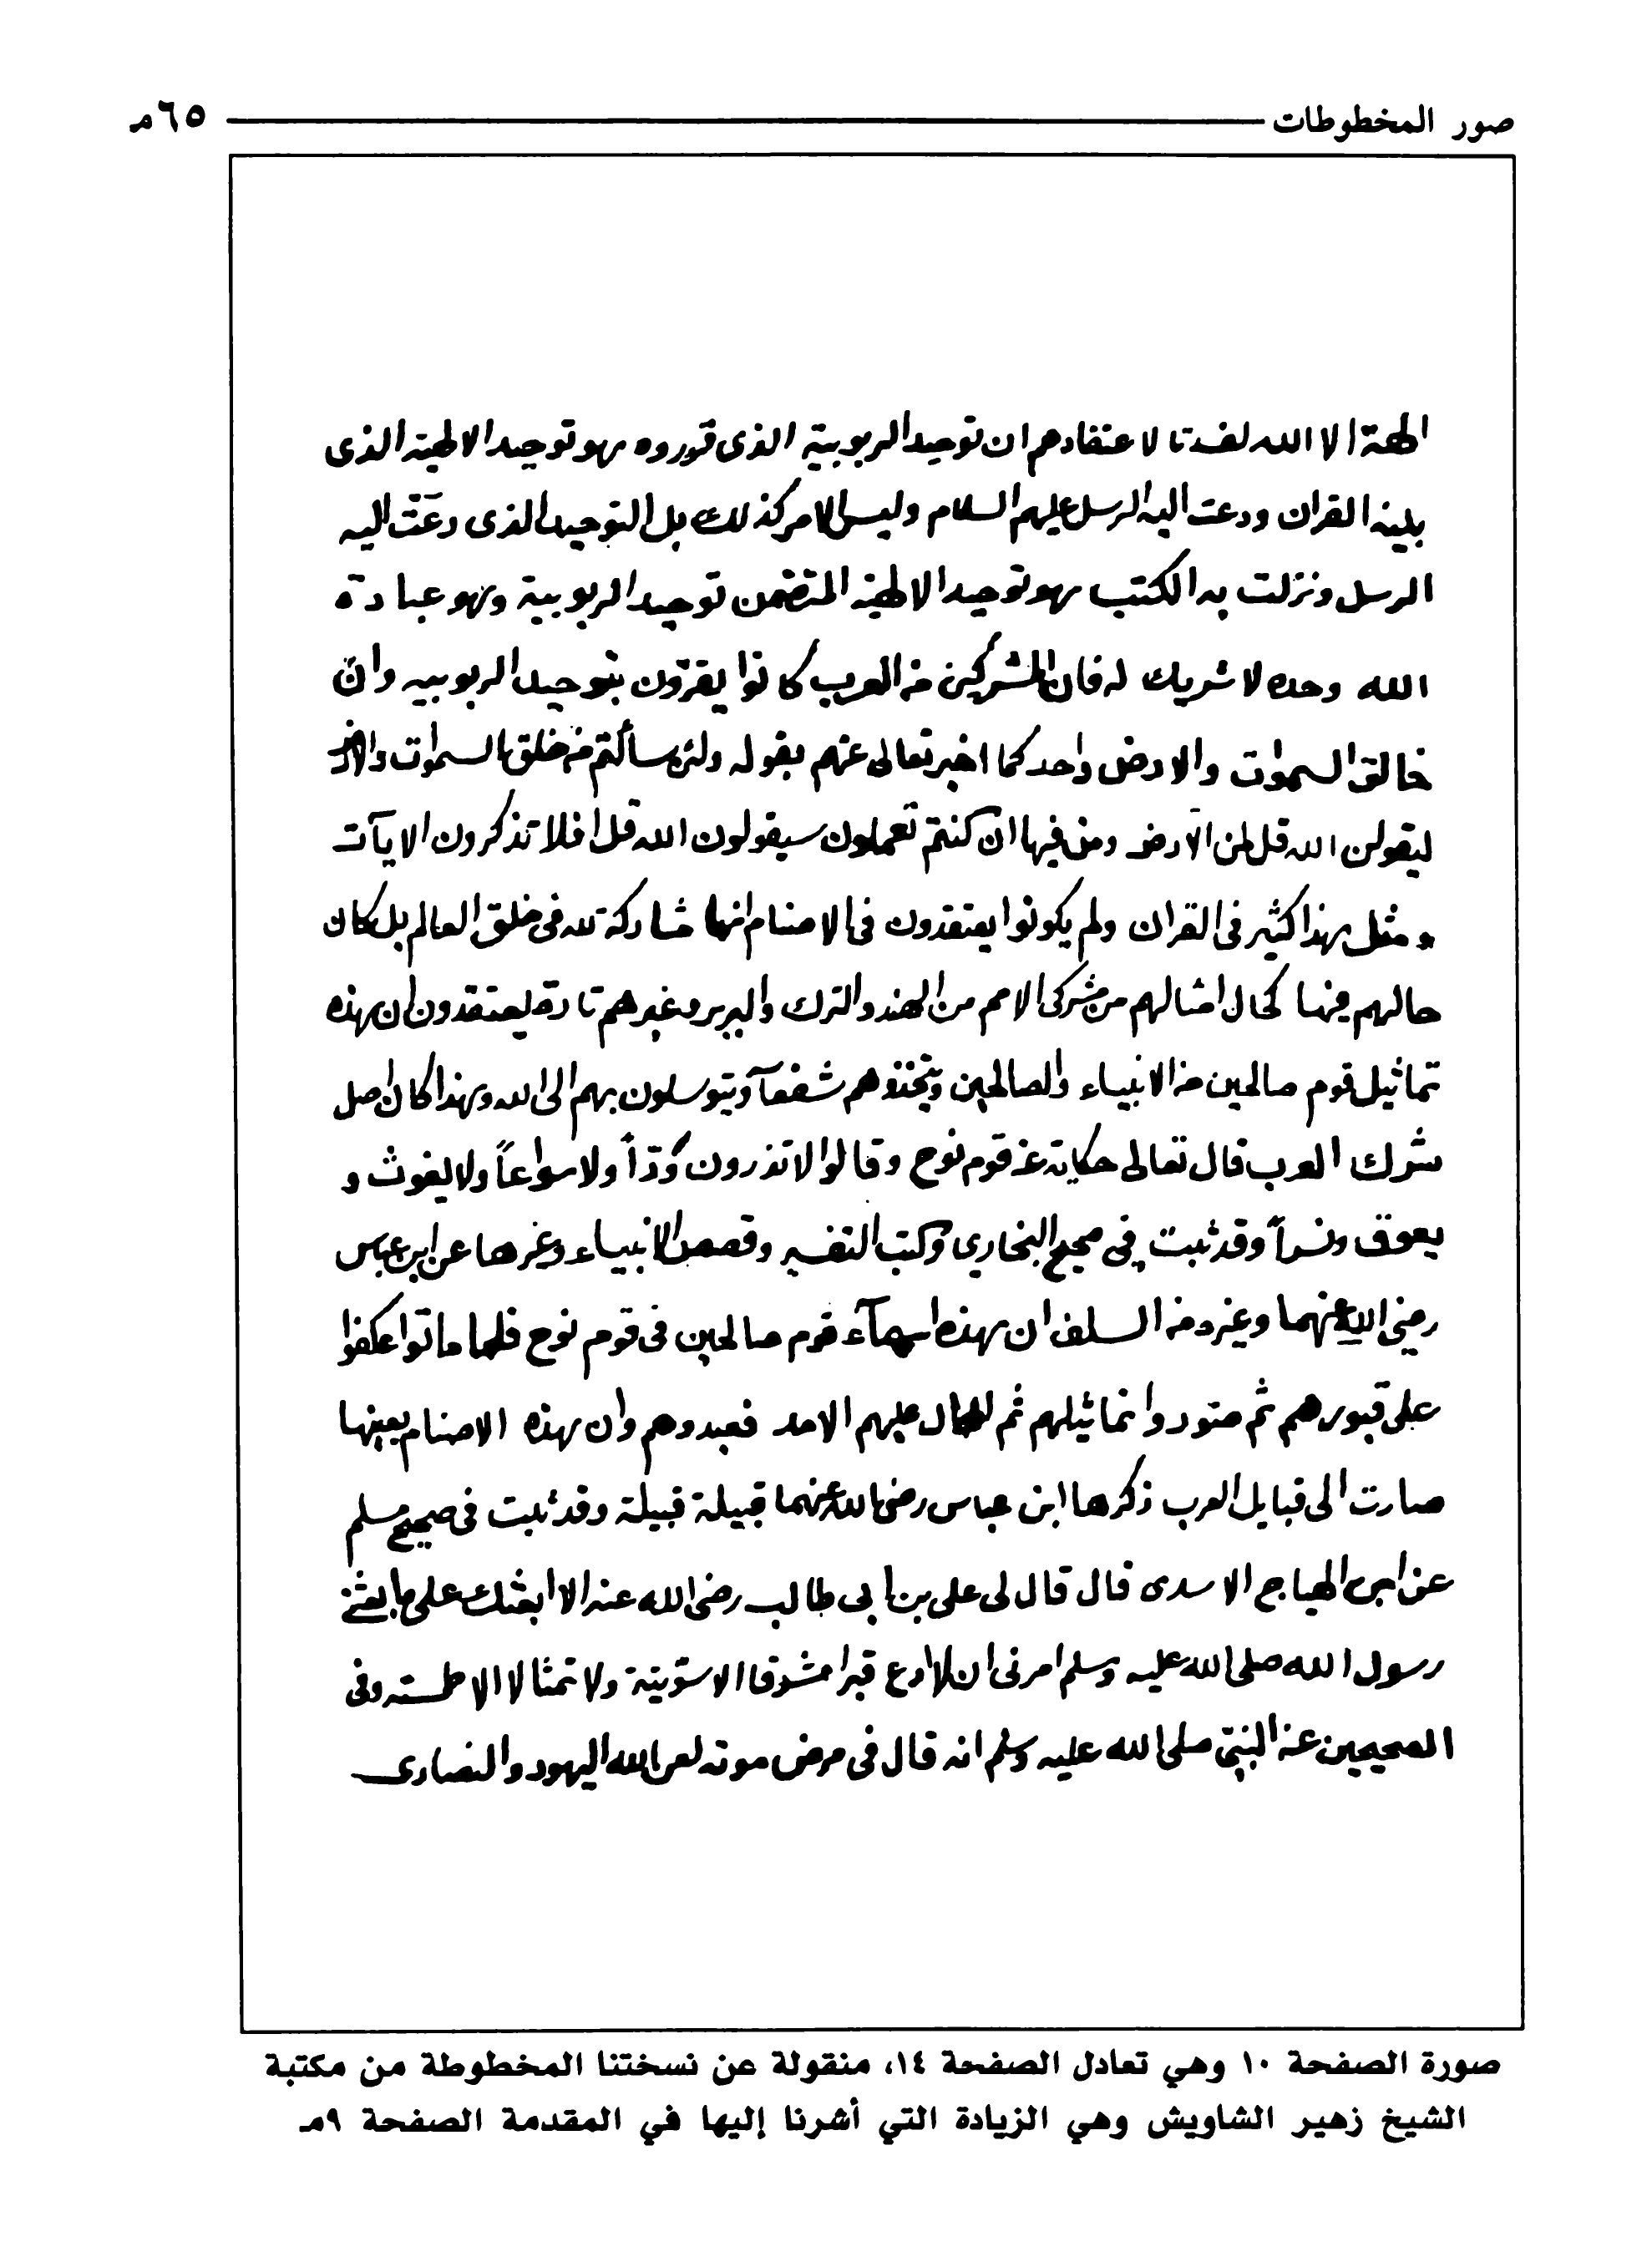 صور المخطوطات ٦٥م
الهة الا الله لفسدتا لاعتقادهم ان توحيد الربوبية الذى قرروه هو توحيد الالهية الذى
بينه القران ودعت اليه الرسل عليهم السلام وليس الامر كذلك بل التوحيد الذى دعَت اليه
الرسل ونزلت به الكتب هو توحيد الالهية المتضمن توحيد الربوبية وهو عبادة
الله وحده لا شريك له فان المشركين من العرب كانوا يقرّون بتوحيد الربوبيه وان
خالق السموات والارض واحد كما اخبر تعالى عنهم بقوله ولئن سألتم من خلق السموات والارض
ليقولن الله قل لمن الارض ومن فيها ان كنتم تعملون سيقولون الله قل افلا تذكرون الايآت
ومثل هذا كثير فى القران ولم يكونوا يعتقدون فى الاصنام انها مشاركة لله فى خلق العالم بل كان
حالهم فيها كحال امثالهم من مشركى الامم من الهند والترك والبربر وغيرهم تارة يعتقدون ان هذه
تماثيل قوم صالحين من الانبياء والصالحين ويتخذوهم شفعآ ويتوسلون بهم الى الله وهذا كان اصل
شرك العرب قال تعالى حكاية عن قوم نوح وقالوا لا تذرون وَدّاً ولا سواعاً ولا يغوث و
يعوق ونسراً وقد ثبت فى صحيح البخاري وكتب التفسير وقصص الانبياء وغيرها عن ابن عباس
رضى الله عنهما وغيره من السلف ان هذه اسمآء قوم صالحين فى قوم نوح فلما ماتوا عكفوا
على قبورهم ثم صوّروا تماثيلهم ثم طال عليهم الامد فعبدوهم وان هذه الاصنام بعينها
صارت الى قبايل العرب ذكرها ابن عباس رضى الله عنهما قبيلة قبيلة وقد ثبت فى صحيح مسلم
عن ابى الهياج الاسدى قال قال لى على بن ابى طالب رضى الله عنه الا ابعثك على ما بعثنى
رسول الله صلى الله عليه وسلم امرنى ان لا ادع قبرا مشرفا الا سوّيته ولا تمثالا الا طمسته وفى
الصحيحين عن النبىّ صلى الله عليه وسلم انه قال فى مرض موته لعن الله اليهود والنصارى
صورة الصفحة ١٠ وهي تعادل الصفحة ١٤، منقولة عن نسختنا المخطوطة من مكتبة
الشيخ زهير الشاويش وهي الزيادة التي أشرنا إليها في المقدمة الصفحة ٩مـ